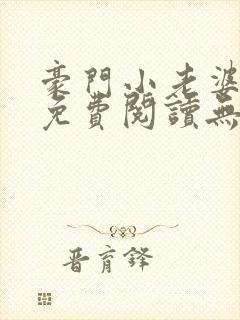 豪門小老婆
免費閱讀無
晋育鋒